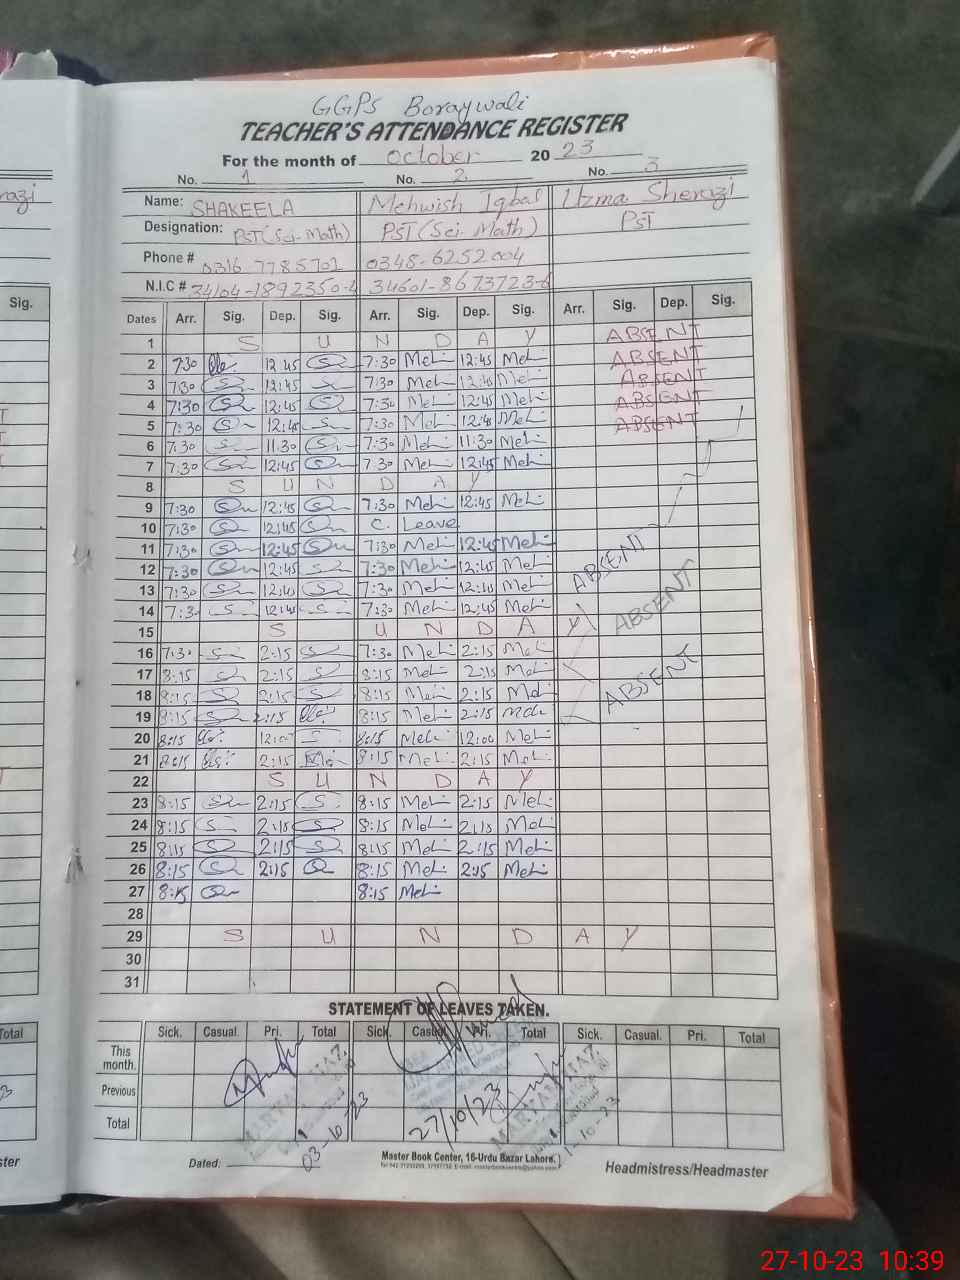 GGPS Boraywali
TEACHER'S ATTENDANCE REGISTER
For the month of October 2023
No. 1 No. 2 No. 3
Name: SHAKEELA Mehwish Iqbal Uzma Sherazi
Designation: PST (Sci-Math) PST (Sci-Math) PST
Phone # 0316 7785701 0348-6252004
N.I.C # 34104-1892350-4 34601-8673723-6
Sig. Dates Arr. Sig. Dep. Sig. Arr. Sig. Dep. Sig. Arr. Sig. Dep. Sig.
1 S U N D A Y ABSENT
2 7:30 12:45 7:30 Meh 12:45 Meh ABSENT
3 7:30 12:45 7:30 Meh 12:45 Meh ABSENT
4 7:30 12:45 7:30 Meh 12:45 Meh ABSENT
5 7:30 12:45 7:30 Meh 12:45 Meh ABSENT
6 7:30 11:30 7:30 Meh 11:30 Meh
7 7:30 12:45 7:30 Meh 12:45 Meh
8 S U N D A Y
9 7:30 12:45 7:30 Meh 12:45 Meh
10 7:30 12:45 C. Leave
11 7:30 12:45 7:30 Meh 12:45 Meh ABSENT
12 7:30 12:45 7:30 Meh 12:45 Meh
13 7:30 12:45 7:30 Meh 12:45 Meh ABSENT
14 7:30 12:45 7:30 Meh 12:45 Meh
15 S U N D A Y
16 7:30 2:15 7:30 Meh 2:15 Meh
17 8:15 2:15 8:15 Meh 2:15 Meh ABSENT
18 8:15 2:15 8:15 Meh 2:15 Meh
19 8:15 2:15 8:15 Meh 2:15 Meh
20 8:15 12:00 8:15 Meh 12:00 Meh
21 8:15 2:15 8:15 Meh 2:15 Meh
22 S U N D A Y
23 8:15 2:15 8:15 Meh 2:15 Meh
24 8:15 2:15 8:15 Meh 2:15 Meh
25 8:15 2:15 8:15 Meh 2:15 Meh
26 8:15 2:15 8:15 Meh 2:15 Meh
27 8:15 8:15 Meh
28
29 S U N D A Y
30
31
STATEMENT OF LEAVES TAKEN.
Total Sick. Casual. Pri. Total Sick. Casual. Pri. Total Sick. Casual. Pri. Total
This month.
Previous
Total
03-10-23
27/10/23
Dated:
Master Book Center, 16-Urdu Bazar Lahore.
Headmistress/Headmaster
27-10-23 10:39